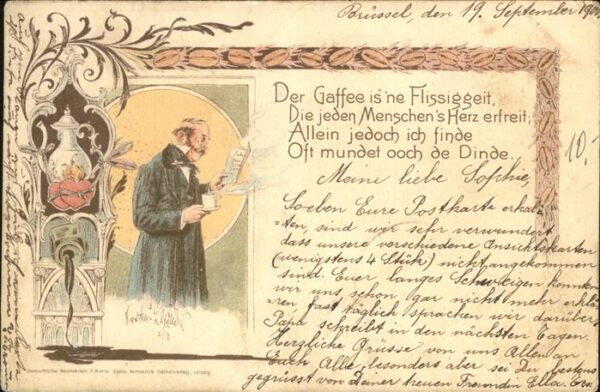 Brüssel, den 19. September
Der Gaffee is 'ne Flissiggeit,
Die jeden Menschen's Herz erfreit;
Allein jedoch ich finde
Oft mundet ooch de Dinde.
10.
Meine liebe Sophie,
Soeben Eure Postkarte erhal-
ten, sind wir sehr verwundert
dass unsere verschiedene Ansichtskarten
(wenigstens 4 Stük) nicht angekommen
sind. Euer langes Schweigen konnten
wir uns schon gar nicht mehr erklä-
ren fast täglich sprachen wir darüber.
Papa schreibt in den nächsten Tagen.
Herzliche Grüsse von uns Allen an
Euch Alle, besonders aber sei Du bestens
gegrüsst von Deiner treuen Freundin